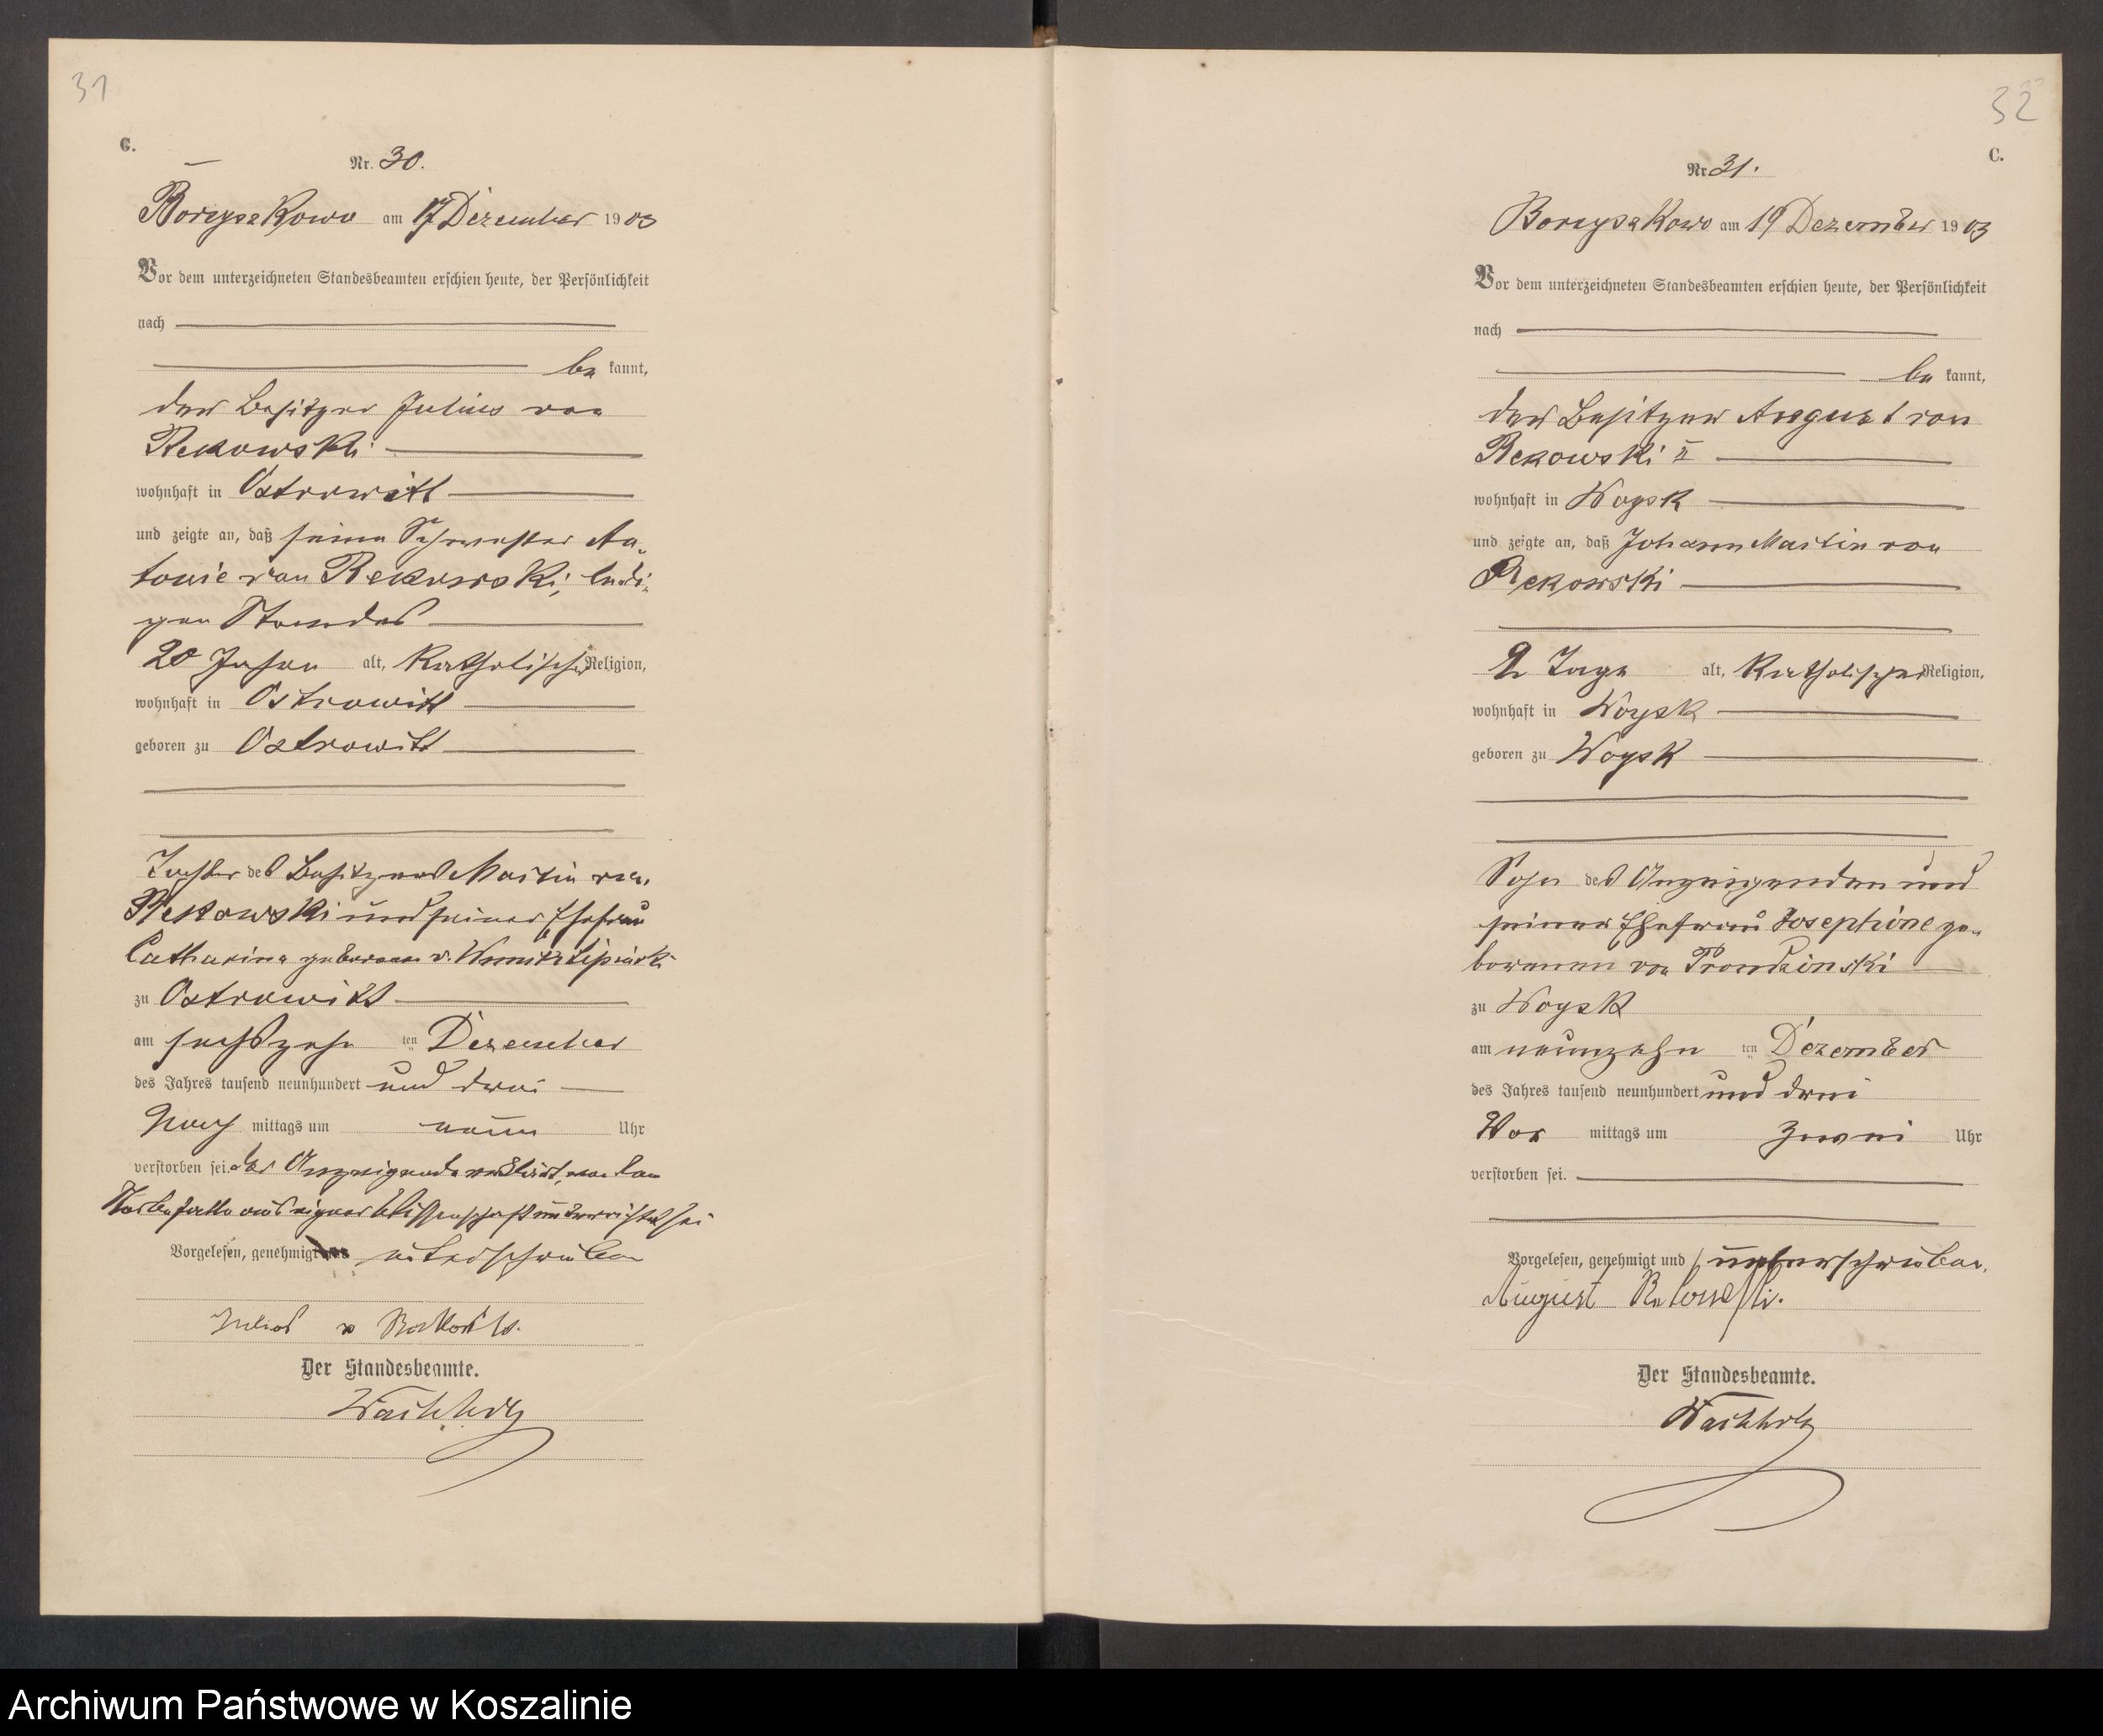 31
C.
Nr. 30.
Borzyskowo am 17 Dezember 1903
Vor dem unterzeichneten Standesbeamten erschien heute, der Persönlichkeit
nach
be kannt,
der Besitzer Julius von
Rekowski
wohnhaft in Ostrowitt
und zeigte an, daß seine Schwester An-
tonie von Rekowski, ledi-
gen Standes
20 Jahre alt, katholischer Religion,
wohnhaft in Ostrowitt
geboren zu Ostrowitt
Tochter des Besitzers Martin von
Rekowski und seiner Ehefrau
Catharina geborenen v. Lipinski
zu Ostrowitt
am sechszehn ten Dezember
des Jahres tausend neunhundert und drei
Nach mittags um neun Uhr
verstorben sei. der Anzeigende erklärt, von dem
Sterbefalle aus eigner Wissenschaft unterrichtet sei
Vorgelesen, genehmigt unterschrieben
Julius v Rekowski.
Der Standesbeamte.
Wachholz
32
C.
Nr. 31.
Borzyskowo am 19 Dezember 1903
Vor dem unterzeichneten Standesbeamten erschien heute, der Persönlichkeit
nach
be kannt,
der Besitzer August von
Rekowski II
wohnhaft in Woysk
und zeigte an, daß Johann Martin von
Rekowski
Tage alt, katholischer Religion,
wohnhaft in Woysk
geboren zu Woysk
Sohn des Anzeigenden und
seiner Ehefrau Josephine ge-
borenen von Prondzinski
zu Woysk
am neunzehn ten Dezember
des Jahres tausend neunhundert und drei
Vor mittags um zwei Uhr
verstorben sei.
Vorgelesen, genehmigt und unterschrieben.
August Rekowski.
Der Standesbeamte.
Wachholz
Archiwum Państwowe w Koszalinie